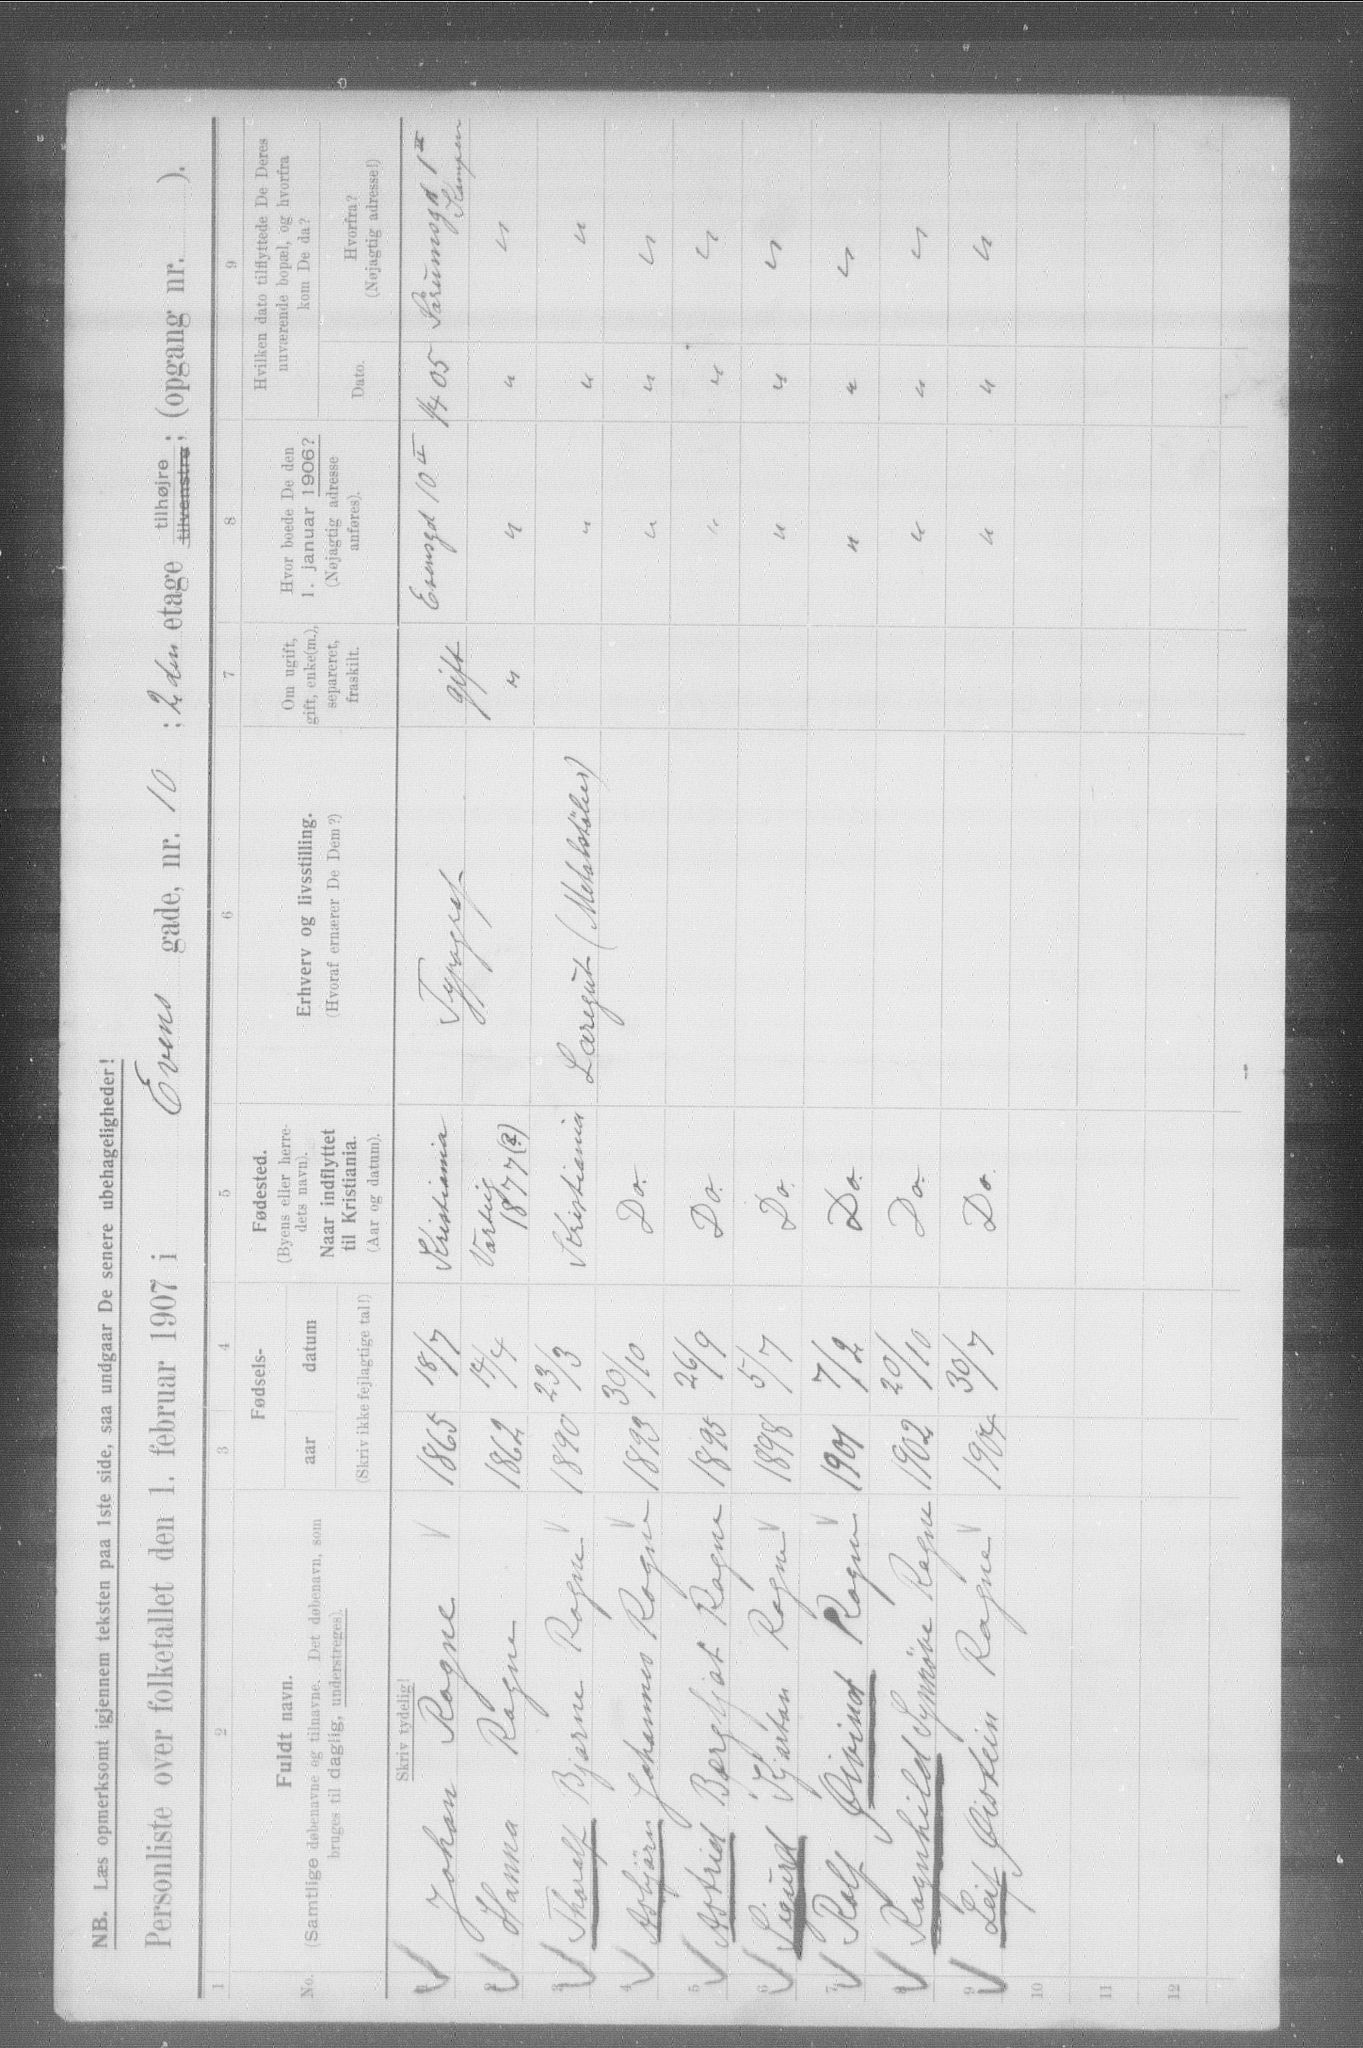 NB. Læs opmerksomt igjennem teksten paa 1ste side, saa undgaar De senere ubehageligheder!
Personliste over folketallet den 1. februar 1907 i Evens gade, nr. 10 ; 2 den etage tilhøjre ; (opgang nr. ).
tilvenstre
1 2 3 4 5 6 7 8 9
No. Fuldt navn. (Samtlige døbenavne og tilnavne. Det døbenavn, som bruges til daglig, understreges).
Fødsels- aar datum (Skriv ikke fejlagtige tal!)
Fødested. (Byens eller herredets navn). Naar indflyttet til Kristiania. (Aar og datum).
Erhverv og livsstilling. (Hvoraf ernærer De Dem?)
Om ugift, gift, enke(m.), separeret, fraskilt.
Hvor boede De den 1. januar 1906? (Nøjagtig adresse anføres).
Hvilken dato tilflyttede De Deres nuværende bopæl, og hvorfra kom De da?
Dato. Hvorfra? (Nøjagtig adresse!)
Skriv tydelig!
1 Johan Rogne 1865 18/7 Kristiania Typograf gift Evensgd 10 II 14 05 Sørumsgd 1 Kampen
2 Hanna Rogne 1862 14/4 Varteig 1877(?) " " " "
3 Thoralf Bjarne Rogne 1890 23/3 Kristiania Læregut (Metalstøberi) " " "
4 Asbjørn Johannes Rogne 1893 30/10 Do. " " "
5 Astrid Bergljot Rogne 1895 26/9 Do. " " "
6 Sigurd Kjartan Rogne 1898 5/7 Do. " " "
7 Rolf Øivind Rogne 1901 7/2 Do. " " "
8 Ragnhild Synnöve Rogne 1902 20/10 Do. " " "
9 Leif Øistein Rogne 1904 30/7 Do. " " "
10
11
12